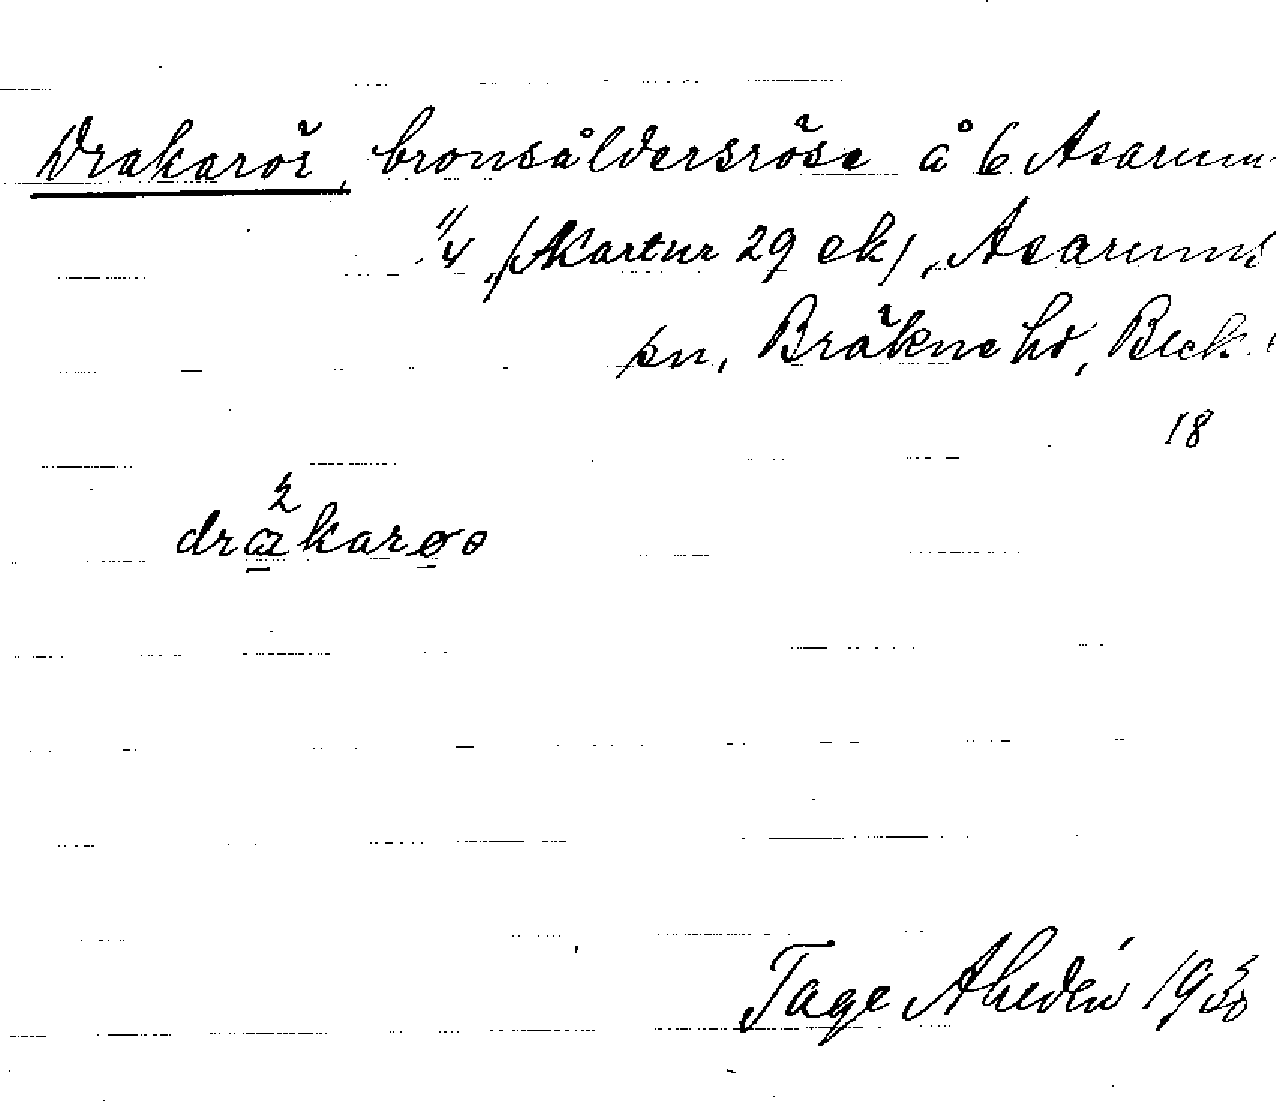 Drakarös, bronsåldersröse å 6 Asarum
11/4, /Kartur 29 ek/, Asarums
sn, Bräkne hd, Blek.
18
drakarøs
Tage Ahldén 1930